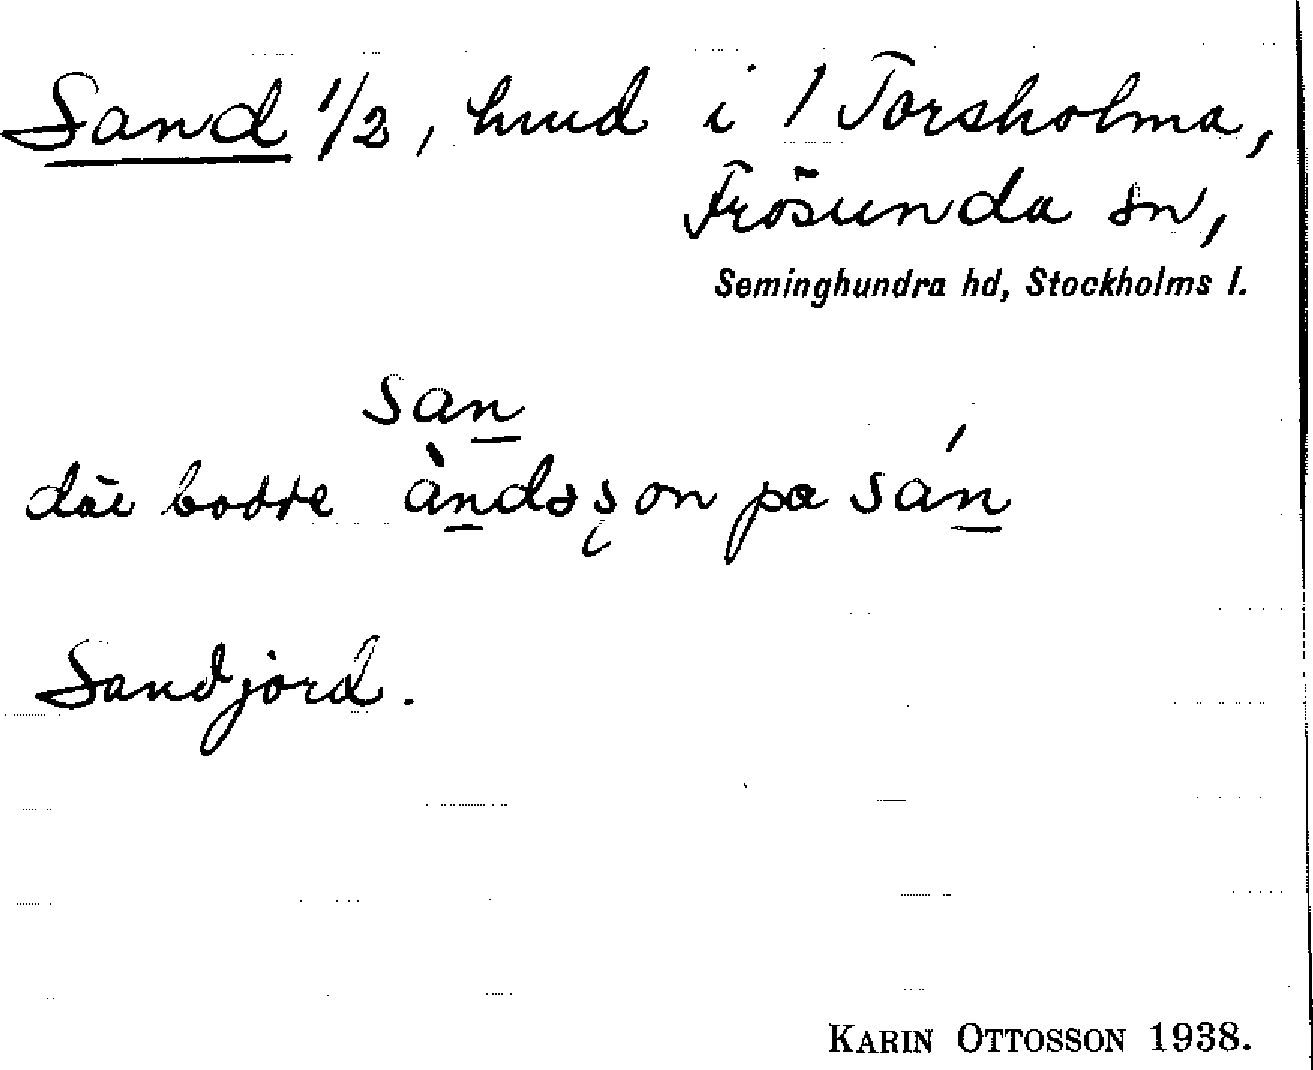 Sand 1/2, hmd i / Torsholma,
Frösunda sn,
Seminghundra hd, Stockholms l.
san
bodde på sán
Sandjord.
KARIN OTTOSSON 1938.